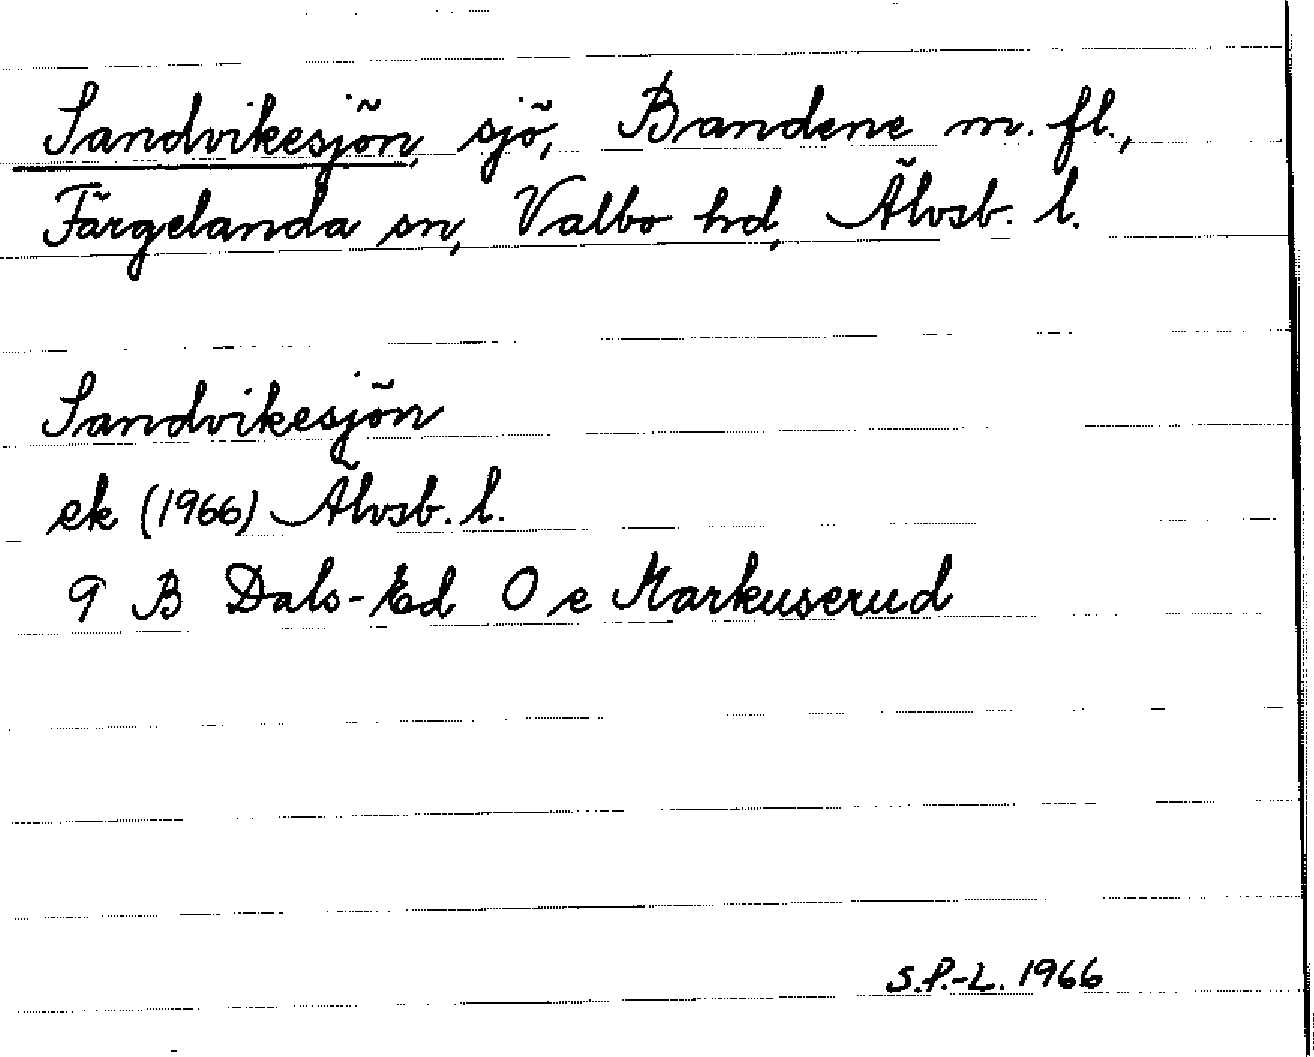 Sandvikesjön, sjö, Bandene m. fl.,
Färgelanda sn, Valbo hd, Älvsb. l.
Sandvikesjön
ek (1966) Älvsb. l.
9 B Dals-Ed O e Markuserud
S.P.-L. 1966